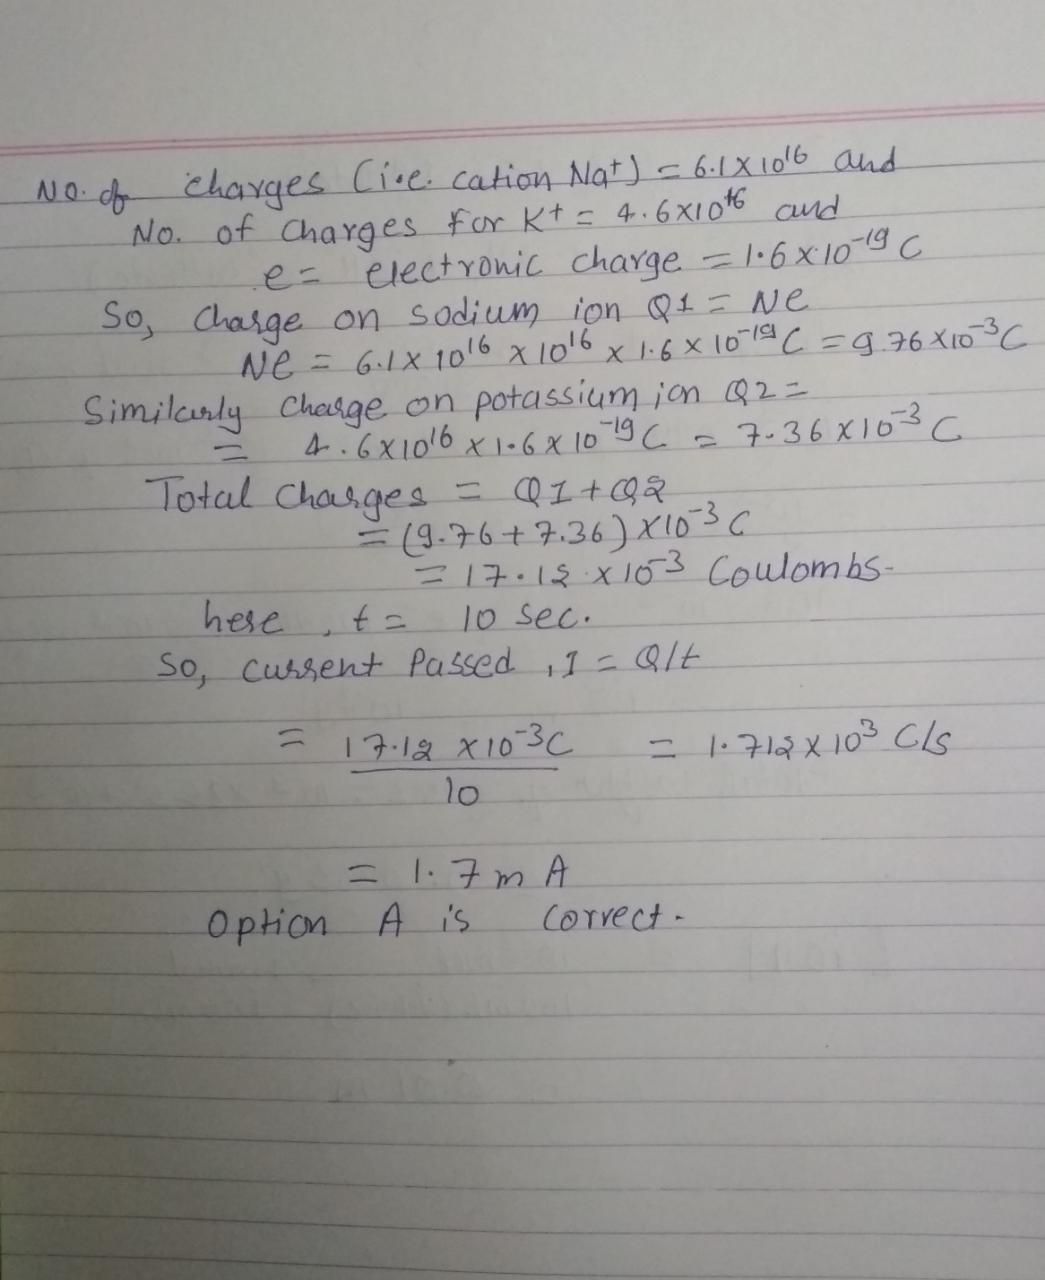 No. of charges (i.e. cation Na+) = 6.1 X 10¹⁶ and
No. of charges for K+ = 4.6X10¹⁶ and
e = electronic charge = 1.6 x 10⁻¹⁹ C
So, charge on sodium ion Q1 = Ne
Ne = 6.1 X 10¹⁶ x 10¹⁶ x 1.6 x 10⁻¹⁹ C = 9.76 X10⁻³C
Similarly charge on potassium ion Q2 =
= 4.6X10¹⁶ x 1.6 x 10⁻¹⁹ C = 7.36 X 10⁻³ C
Total Charges = Q1 + Q2
= (9.76 + 7.36) X10⁻³ C
= 17.12 x 10⁻³ Coulombs.
here , t = 10 sec.
So, current Passed , I = Q/t
= 17.12 x10⁻³C / 10 = 1.712 X 10³ C/s
= 1.7 m A
Option A is correct.